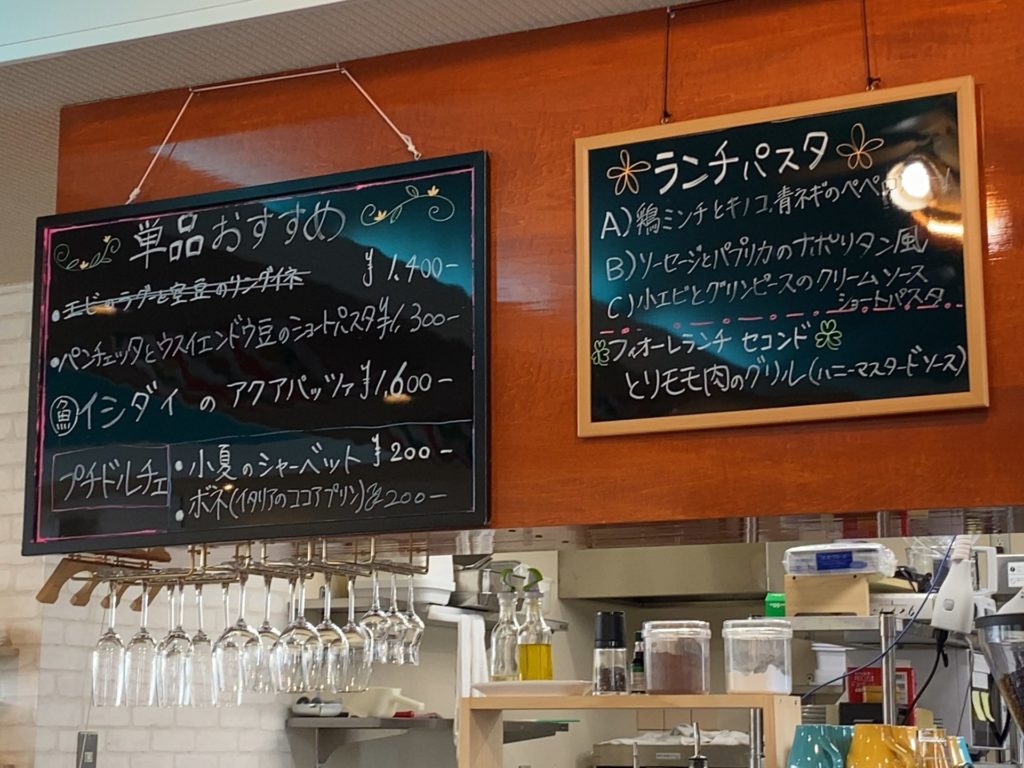 単品おすすめ
・エビのラグーと空豆のリングイネ ¥1,400-
・ペンチェッタとウスイエンドウ豆のショートパスタ ¥1,300-
魚 イシダイ の アクアパッツァ ¥1,600-
プチドルチェ
・小夏のシャーベット ¥200-
・ボネ(イタリアのココアプリン) ¥200-
ランチパスタ
A)鶏ミンチとキノコ、青ネギのペペロ
B)ソーセージとパプリカのナポリタン風
C)小エビとグリンピースのクリームソース
ショートパスタ
フィオーレランチ セコンド
とりモモ肉のグリル(ハニーマスタードソース)